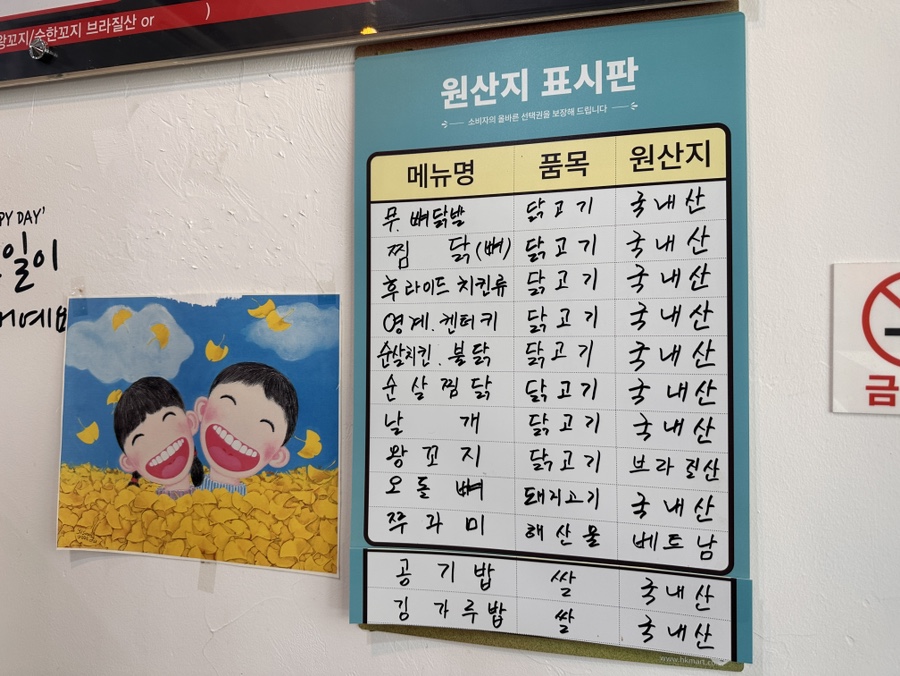 왕꼬지/순한꼬지 브라질산 or )
원산지 표시판
소비자의 올바른 선택권을 보장해 드립니다
메뉴명 품목 원산지
무.뼈닭발 닭고기 국내산
찜 닭(뼈) 닭고기 국내산
후라이드 치킨류 닭고기 국내산
영계.켄터키 닭고기 국내산
순살치킨.불닭 닭고기 국내산
순살찜닭 닭고기 국내산
날 개 닭고기 국내산
왕꼬지 닭고기 브라질산
오돌뼈 돼지고기 국내산
쭈꾸미 해산물 베트남
공기밥 쌀 국내산
김가루밥 쌀 국내산
PY DAY'
일이
금